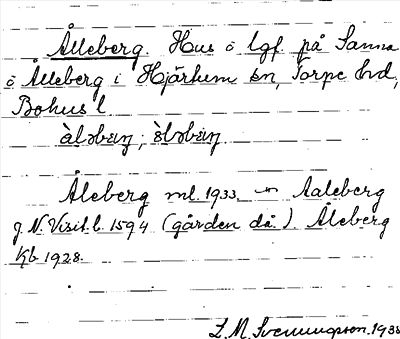 Ålleberg. Hus o lgf. på Sanna
ö Ålleberg i Hjärtum sn, Torpe hd,
Bohus l.
Åleberg ml. 1933 Aaleberg
J. N. Visit. b. 1594 (gården då.) Åleberg
Kb 1928.
L. M. Svenungsson. 1938